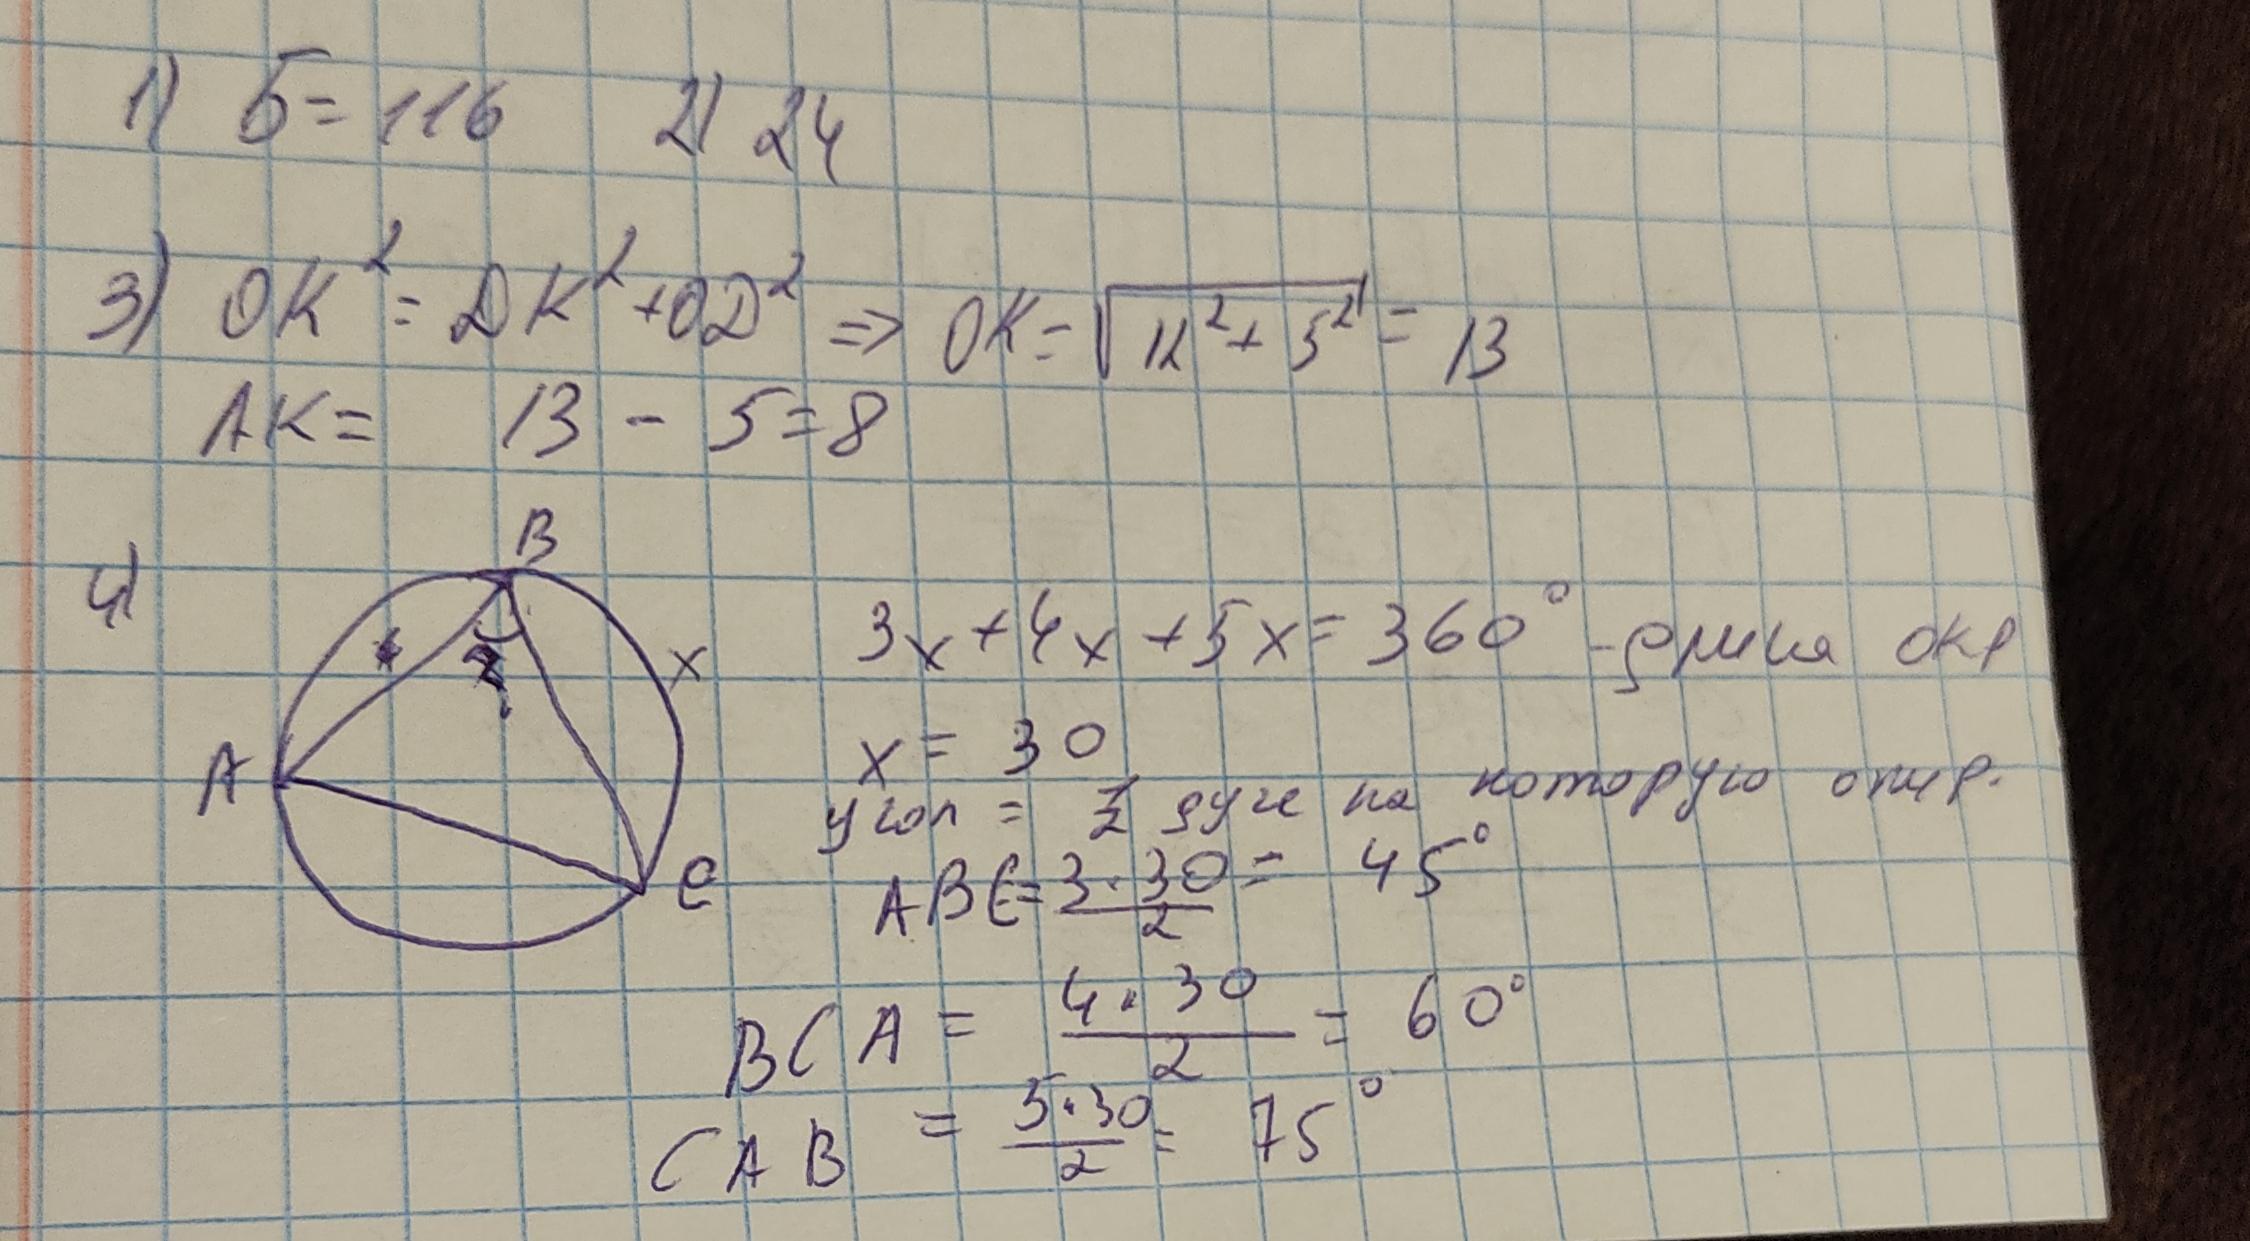 1) Б = 116 2) 24
3) OK² = DK² + OD² => OK = √12² + 5² = 13
AK = 13 - 5 = 8
4)
B
x
A
C
3x + 4x + 5x = 360° - длина окр
x = 30
угол = 1/2 дуге на которую опир.
ABC = 3·30/2 = 45°
BCA = 4·30/2 = 60°
CAB = 5·30/2 = 75°